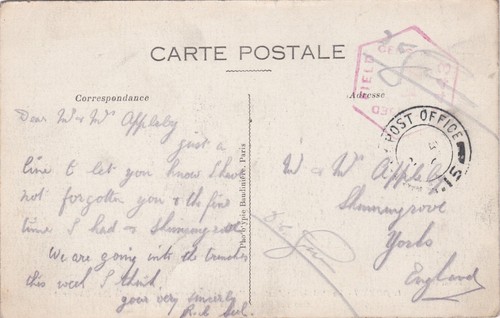 CARTE POSTALE
Correspondance
Adresse
Dear Mr & Mrs Appleby
just a
line to let you know I have
not forgotten you & the fine
time I had at Skinningrove
We are going into the trenches
this week I think.
your very sincerely
Phototypie Baudinière, Paris
Mr & Mrs Appleby
Skinningrove
Yorks
England
FIELD CENSOR
POST OFFICE
15